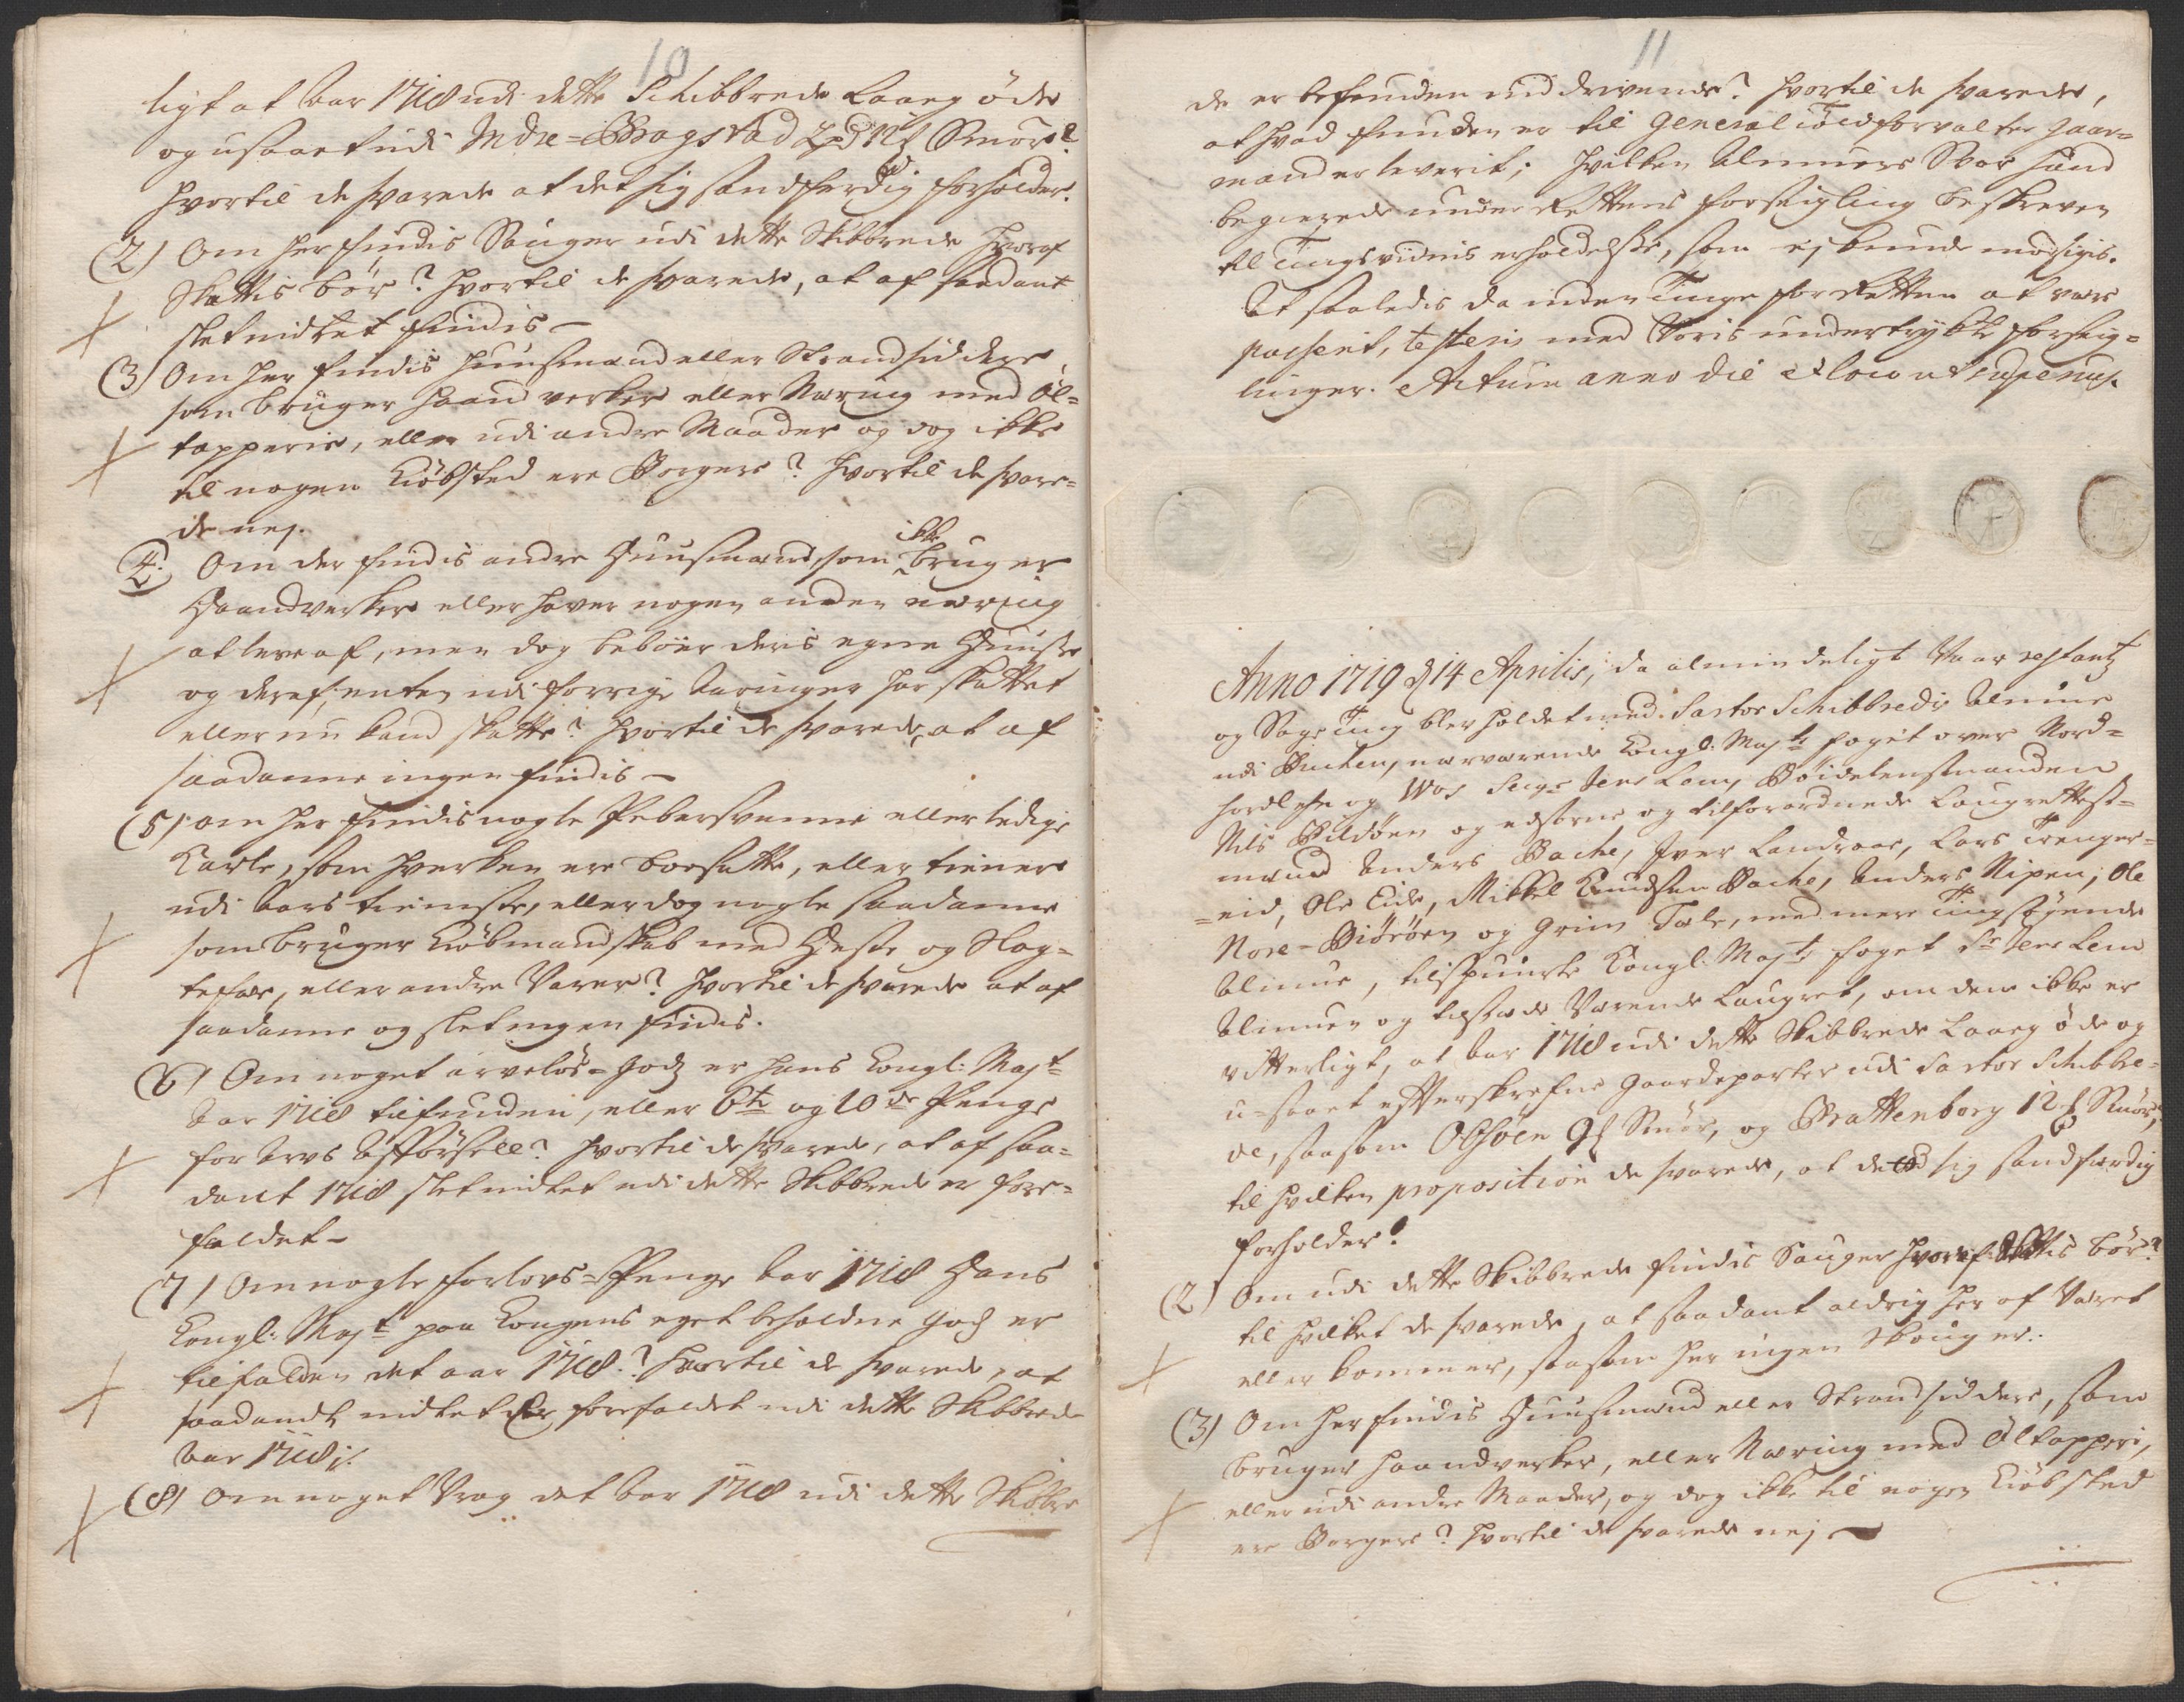 10
ligt at Aar 1718 udi dette Schibbrede Laaeg öde
og usaaet udi Indre-Bogstad 2 pd 12 ℔ Smör?
Hvortil de svarede at det sig sandferdig forholder.
(2) Om her findis Sauger udi dette Skibbrede Hvoraf
Skattis bör? Hvortil de svarede, at af saadant
slet nidtet findis –
(3) Om her findis Huusmænd eller Strandsiddere,
som bruger Haandverker eller Næring med Öl-
tapperie, eller udi andre Maader og dog ikke
til nogen Kiöbsted ere Borgere? Hvortil de svare-
de nej.
4. Om der findis andre Huusmænd, som ikke bruger
Haandverker eller haver nogen anden næring
at leve af, men dog beboer deris egne Huuse
og deraf, enten udi forrige Krigen har skattet
eller nu kand skatte? Hvortil de svarede, at af
saadanne ingen findis –
(5) om her findis nogle Pebersvenne eller ledige
Karle, som hverken ere boesatte, eller tiener
udi Aars tieniste, eller dog nogle saadanne
som bruger Kiöbmandskab med Heste og Slag-
tefæe, eller andre Varer? Hvortil de svarede at af
saadanne og slet ingen findis.
(6) Om noget arvelös-Godz er Hans Kongl: Majt
Aar 1718 tilfunden, eller 6te og 10de Penge
for Arvs Udförsell? Hvortil de svarede, at af saa-
dant 1718 slet nidtet udi dette Skibbrede er fore-
faldet –
(7) Om nogle forlovs-Penge Aar 1718 Hans
Kongl: Majt paa Kongens eget beholdne Godz er
tilfalden det aar 1718? Hvortil de svarede, at
saadandt nidtet er forefaldet udi dette Skibbrede
Aar 1718 ./.
(8) Om noget Vrag det Aar 1718 udi dette Skibbre
11
de er befunden ind drivende? Hvortil de svarede,
at hvad funden er til General Toldforvalter Gaar-
mand er leverit; Hvilken Almues Svar Hand
begierede under Rettens forseigling beskreven
til Tingsvidnis erholdelse, som ej kunde nægtis.
At saaledis da inden Tinge for Retten at være
passerit, testeris med Voris undertrykte forseig-
linger. Actum anno die et loco ut supra
Anno 1719 d 14 Aprilis, da almindeligt Vaar restantz
og Sage Ting blev holdet med Sartor Schibbredis Almue
udi Buchen, nærværende Kongl: Majts foget over Nord-
hordlehn og Wos Seigr Jens Lem, Böidelensmanden
Nils Bildöen og edsorne og tilforordnede Laugrettes-
mænd Anders Bache, Iver Landraae, Lars Trenger-
-eid, Ole Eide, Mikkel Knudsen Bache, Anders Nipen, Ole
Nore-Biöröen og Grim Tæle, med mere Tingsögende
Almue, tilspurte Kongl: Majts foget Sr Jens Lem
Almuen og tilstæde værende Laugret, om dem ikke er
vitterligt, at Aar 1718 udi dette Skibbrede Laaeg öde og
u-saaet efterskrefne Gaardeparter udi Sartor Schibbre-
de, saasom Ohsöen 9 ℔ Smör, og Brattenborg 12 ℔ Smör,
til hvilken proposition de svarede, at det sig sandfærdig
forholder!
(2) Om udi dette Skibbrede findis Sauger hvoraf Skattis bör?
til hvilket de svarede, at saadant aldrig her af Været
eller kommer, saasom her ingen Skoug er.
(3) Om her findis Huusmænd eller Strandsiddere, som
bruger Haandverker, eller Næring med Öltapperi,
eller udi andre Maader, og dog ikke til nogen Kiöbsted
ere Borgere? Hvortil de svarede nej –